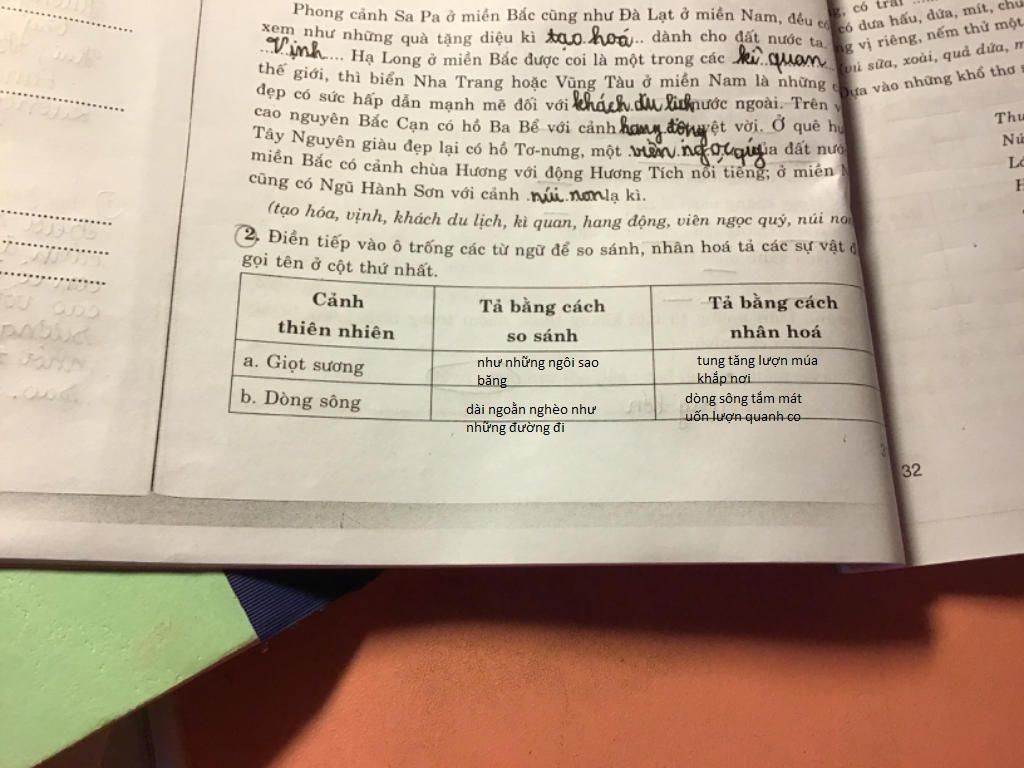 Phong cảnh Sa Pa ở miền Bắc cũng như Đà Lạt ở miền Nam, đều có
xem như những quà tặng diệu kì tạo hoá... dành cho đất nước ta.
...Vịnh.... Hạ Long ở miền Bắc được coi là một trong các kì quan
thế giới, thì biển Nha Trang hoặc Vũng Tàu ở miền Nam là những
đẹp có sức hấp dẫn mạnh mẽ đối với khách du lịch nước ngoài. Trên
cao nguyên Bắc Cạn có hồ Ba Bể với cảnh hang động yệt vời. Ở quê
Tây Nguyên giàu đẹp lại có hồ Tơ-nưng, một viên ngọc quý ủa đất nướ
miền Bắc có cảnh chùa Hương với động Hương Tích nổi tiếng; ở miền N
cũng có Ngũ Hành Sơn với cảnh núi non lạ kì.
(tạo hóa, vịnh, khách du lịch, kì quan, hang động, viên ngọc quý, núi no
2. Điền tiếp vào ô trống các từ ngữ để so sánh, nhân hoá tả các sự vật
gọi tên ở cột thứ nhất.
Cảnh
thiên nhiên
Tả bằng cách
so sánh
Tả bằng cách
nhân hoá
a. Giọt sương
như những ngôi sao
băng
tung tăng lượn múa
khắp nơi
b. Dòng sông
dài ngoằn nghèo như
những đường đi
dòng sông tắm mát
uốn lượn quanh co
có trái
có dưa hấu, dứa, mít, chu
vị riêng, nếm thử một
(vú sữa, xoài, quả dứa, m
Dựa vào những khổ thơ s
Thu
Nú
32